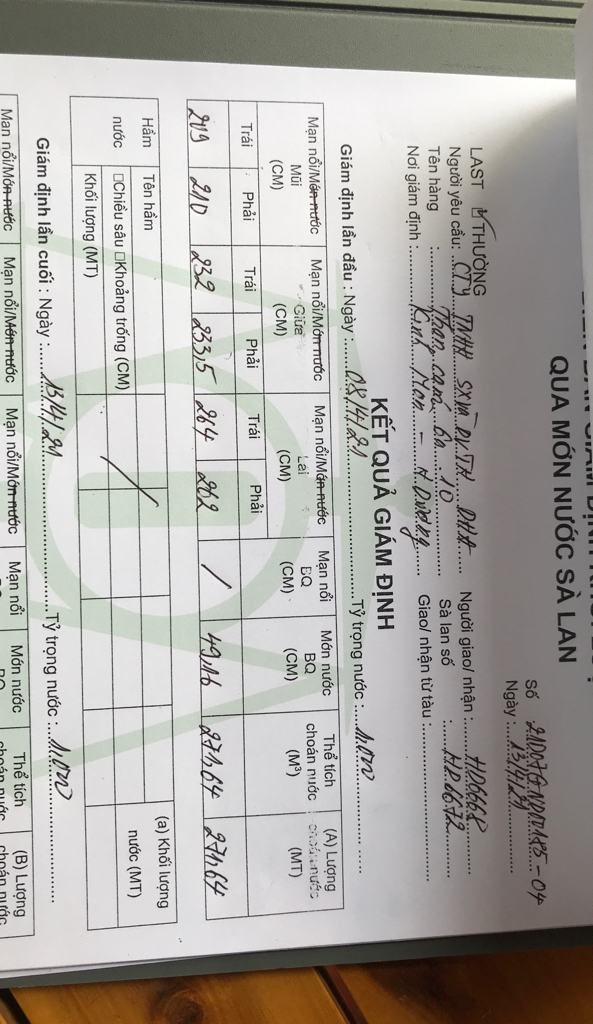 QUA MÓN NƯỚC SÀ LAN
Số 21D07G
Ngày : 13/4/21
LAST ☑ THƯỜNG
Người yêu cầu: CTY TNHH SX và DV.TH DHA Người giao/ nhận : HD6668
Tên hàng : Than cám 6a.10 Sà lan số : HD 6672
Nơi giám định : Kinh Môn - H Dương Giao/ nhận từ tàu :
KẾT QUẢ GIÁM ĐỊNH
Giám định lần đầu : Ngày : 08/4/21 Tỷ trọng nước : 1.000
Mạn nổi/Món nước Mũi (CM) Mạn nổi/Món nước Giữa (CM) Mạn nổi/Món nước Lái (CM) Mạn nổi BQ (CM) Món nước BQ (CM) Thể tích choán nước (M³) (A) Lượng choán nước (MT)
Trái Phải Trái Phải Trái Phải
219 210 232 233,5 264 262 / 49,16 271,64 271,64
Hầm nước Tên hầm (a) Khối lượng nước (MT)
☐Chiều sâu ☐Khoảng trống (CM) /
Khối lượng (MT)
Giám định lần cuối : Ngày : 13/4/21 Tỷ trọng nước : 1.000
Mạn nổi/Món nước Mạn nổi/Món nước Mạn nổi/Món nước Mạn nổi Món nước Thể tích (B) Lượng
choán nước choán nước